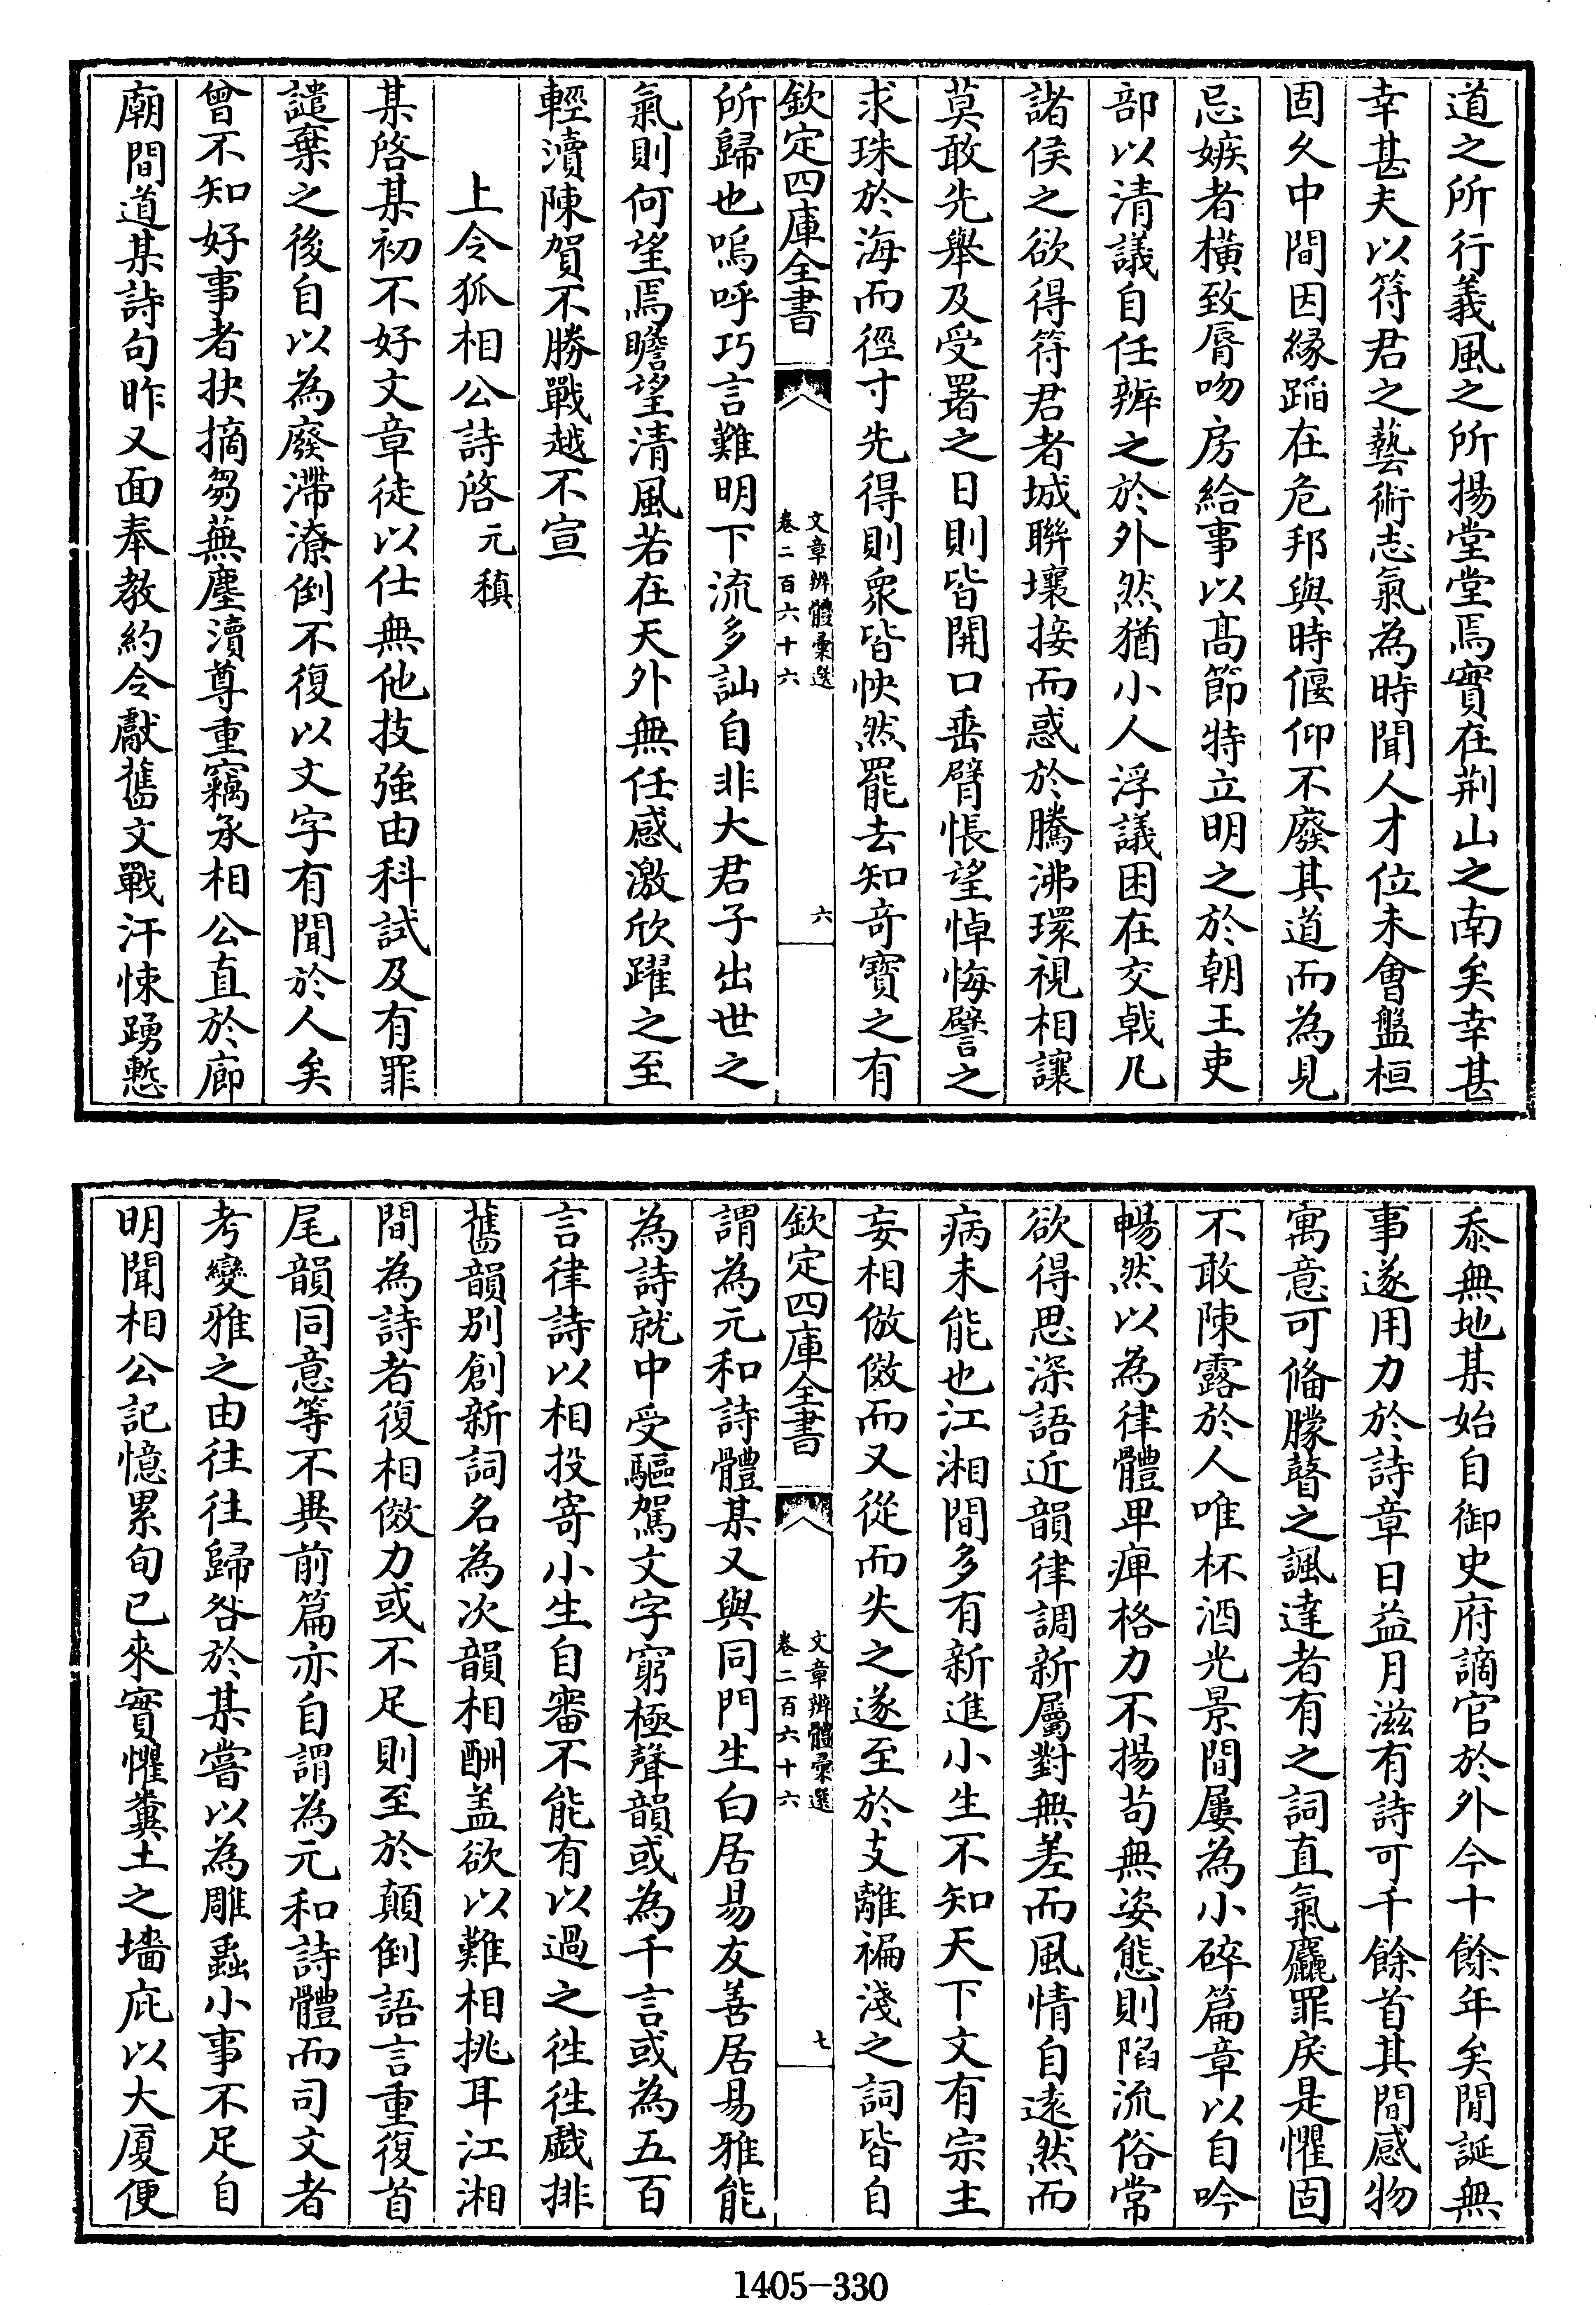 道之所行義風之所揚堂堂焉實在荆山之南矣幸甚
幸甚夫以符君之藝術志氣為時聞人才位未會盤桓
固久中間因緣蹈在危邦與時偃仰不廢其道而為見
忌嫉者橫致脣吻房給事以髙節特立明之於朝王吏
部以清議自任辨之於外然猶小人浮議困在交㦸凡
諸侯之欲得符君者城聯壤接而惑於騰沸環視相讓
莫敢先舉及受署之日則皆開口垂臂悵望悼悔譬之
求珠於海而徑寸先得則衆皆怏然罷去知奇寳之有
欽定四庫全書
文章辨體彙選
卷二百六十六
六
所歸也嗚呼巧言難明下流多訕自非大君子出世之
氣則何望焉瞻望清風若在天外無任感激欣躍之至
輕瀆陳賀不勝戰越不宣
上令狐相公詩啓 元稹
某啓某初不好文章徒以仕無他技強由科試及有罪
譴棄之後自以為廢滯潦倒不復以文字有聞於人矣
曾不知好事者抉摘芻蕪塵瀆尊重竊承相公直於廊
廟間道某詩句昨又面奉教約令獻舊文戰汗悚踴慙
忝無地某始自御史府謫官於外今十餘年矣閒誕無
事遂用力於詩章日益月滋有詩可千餘首其間感物
寓意可備矇瞽之諷達者有之詞直氣麤罪戾是懼固
不敢陳露於人唯杯酒光景間屢為小碎篇章以自吟
暢然以為律體卑痺格力不揚茍無姿態則陷流俗常
欲得思深語近韻律調新屬對無差而風情自逺然而
病未能也江湘間多有新進小生不知天下文有宗主
妄相倣傚而又從而失之遂至於支離褊淺之詞皆自
欽定四庫全書
文章辨體彙選
卷二百六十六
七
謂為元和詩體某又與同門生白居易友善居易雅能
為詩就中受驅駕文字窮極聲韻或為千言或為五百
言律詩以相投寄小生自審不能有以過之徃徃戯排
舊韻別創新詞名為次韻相酬盖欲以難相挑耳江湘
間為詩者復相傚力或不足則至於顛倒語言重復首
尾韻同意等不異前篇亦自謂為元和詩體而司文者
考變雅之由往往歸咎於某嘗以為雕蟲小事不足自
明聞相公記憶累旬已來實懼糞土之墻庇以大厦便
1405-330